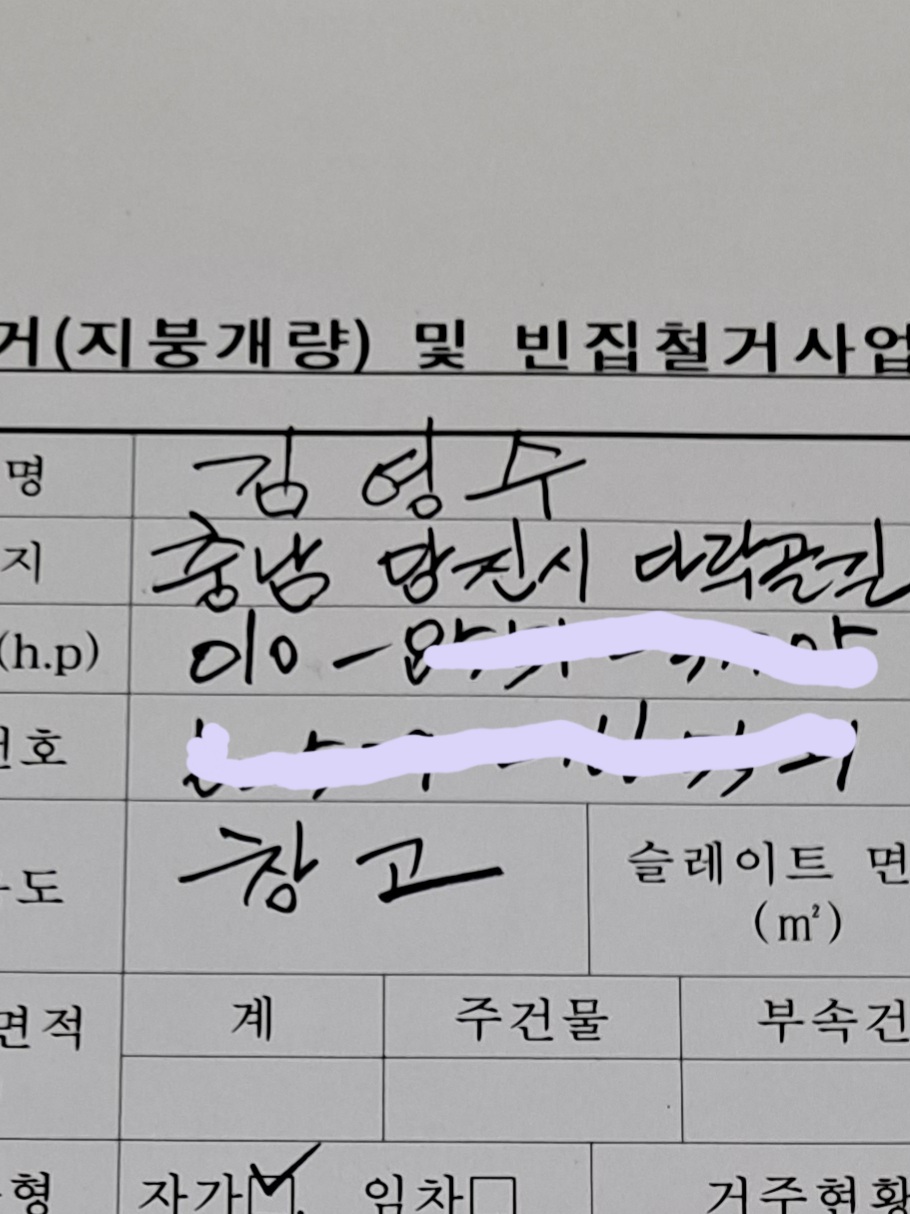 거(지붕개량) 및 빈집철거사업
명 김영수
지 충남 당진시 다락골길
(h.p) 010 -
번호
도 창고 슬레이트 면
(㎡)
면적 계 주건물 부속건
형 자가☑. 임차□ 거주현황